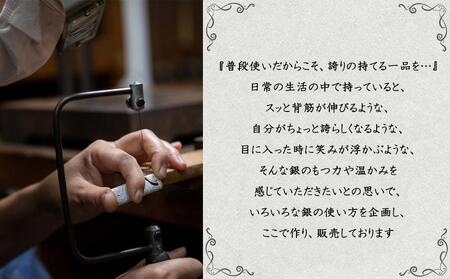 『普段使いだからこそ、誇りの持てる一品を…』
日常の生活の中で持っていると、
スッと背筋が伸びるような、
自分がちょっと誇らしくなるような、
目に入った時に笑みが浮かぶような、
そんな銀のもつ力や温かみを
感じていただきたいとの思いで、
いろいろな銀の使い方を企画し、
ここで作り、販売しております